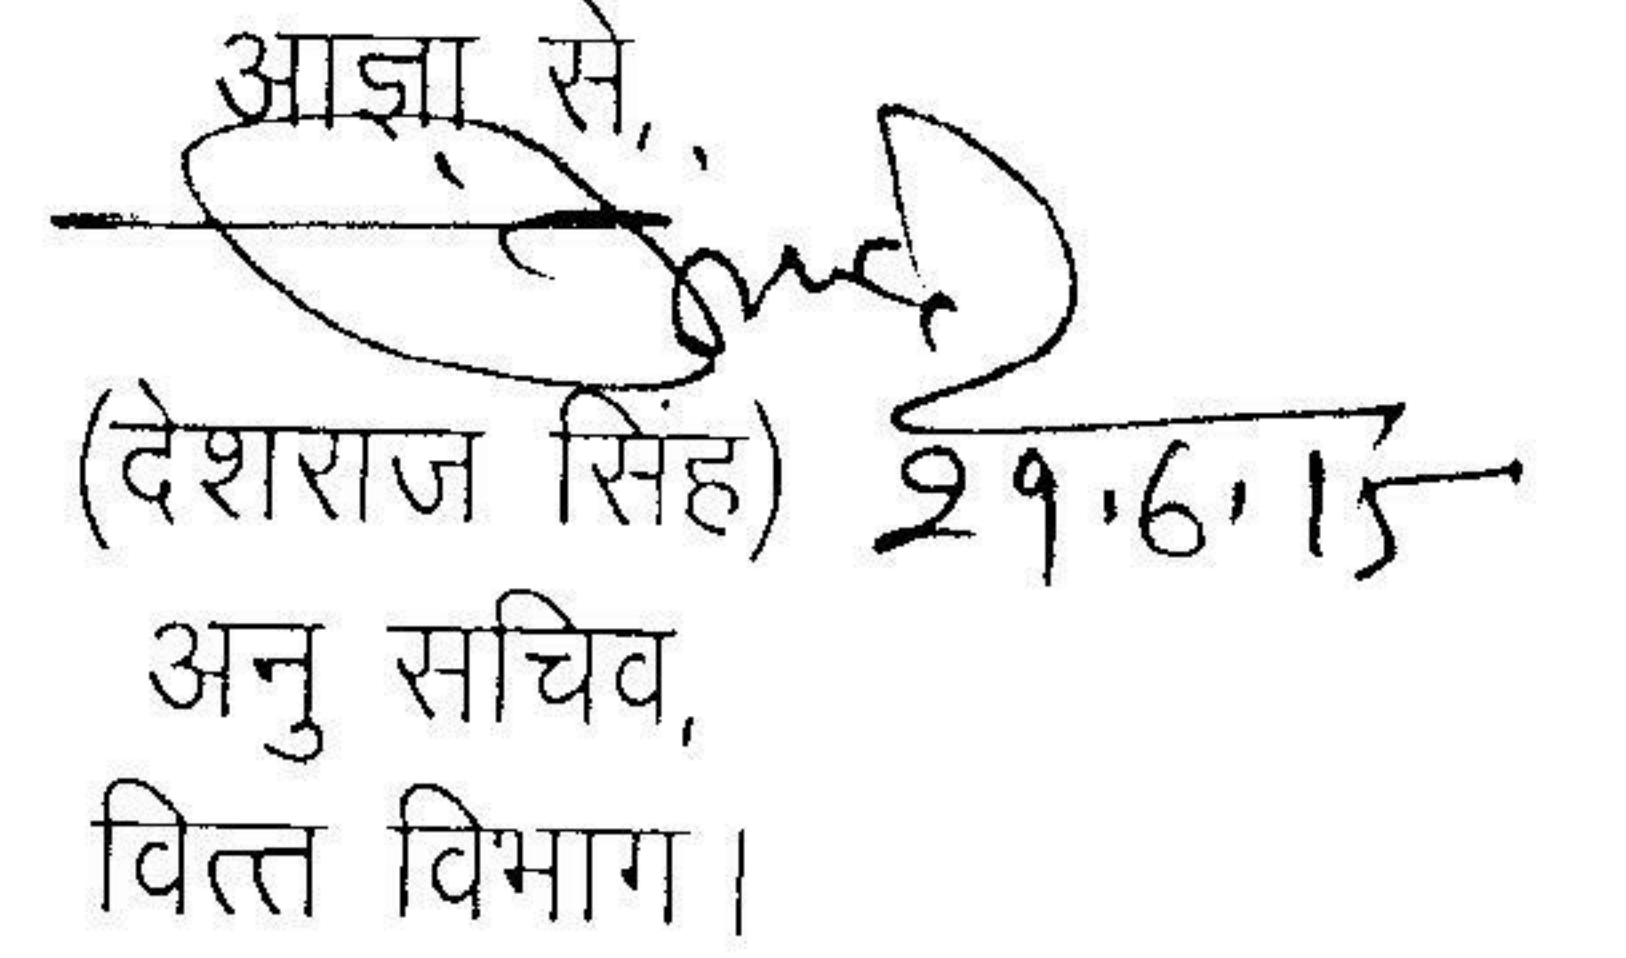 आज्ञा से,
(देशराज सिंह) 29.6.15
अनु सचिव,
वित्त विभाग।